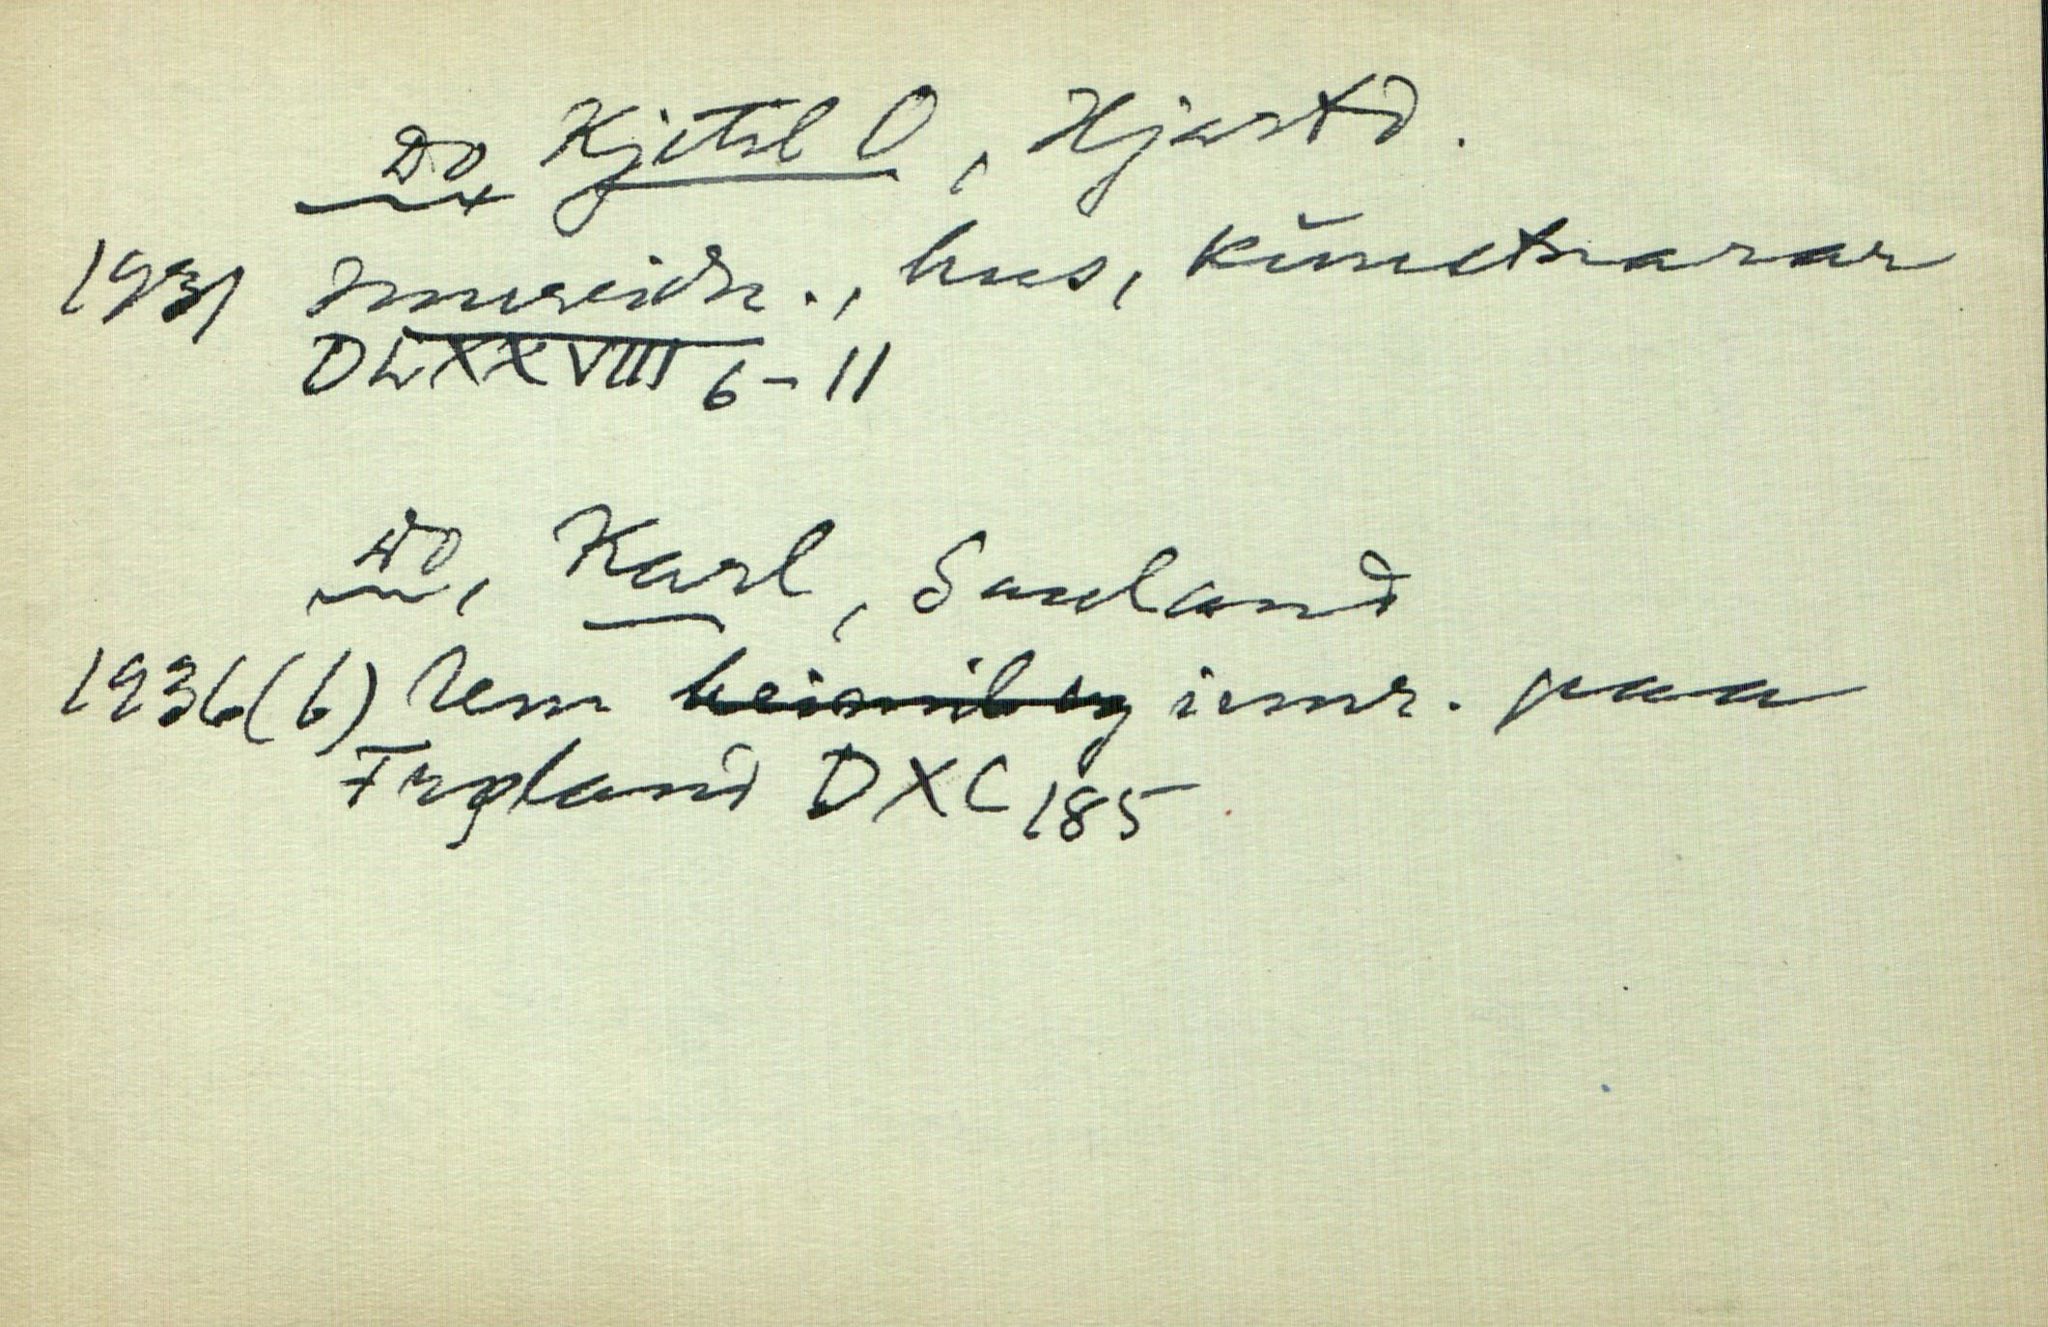 Do Kjetil O, Hjartd.
1931 Innreidn., hus, kŭnstnarar
DLXXVIII 6-11
Do, Karl, Sauland
1936(6) Um heimil og innr. paa
Frgland DXC 185